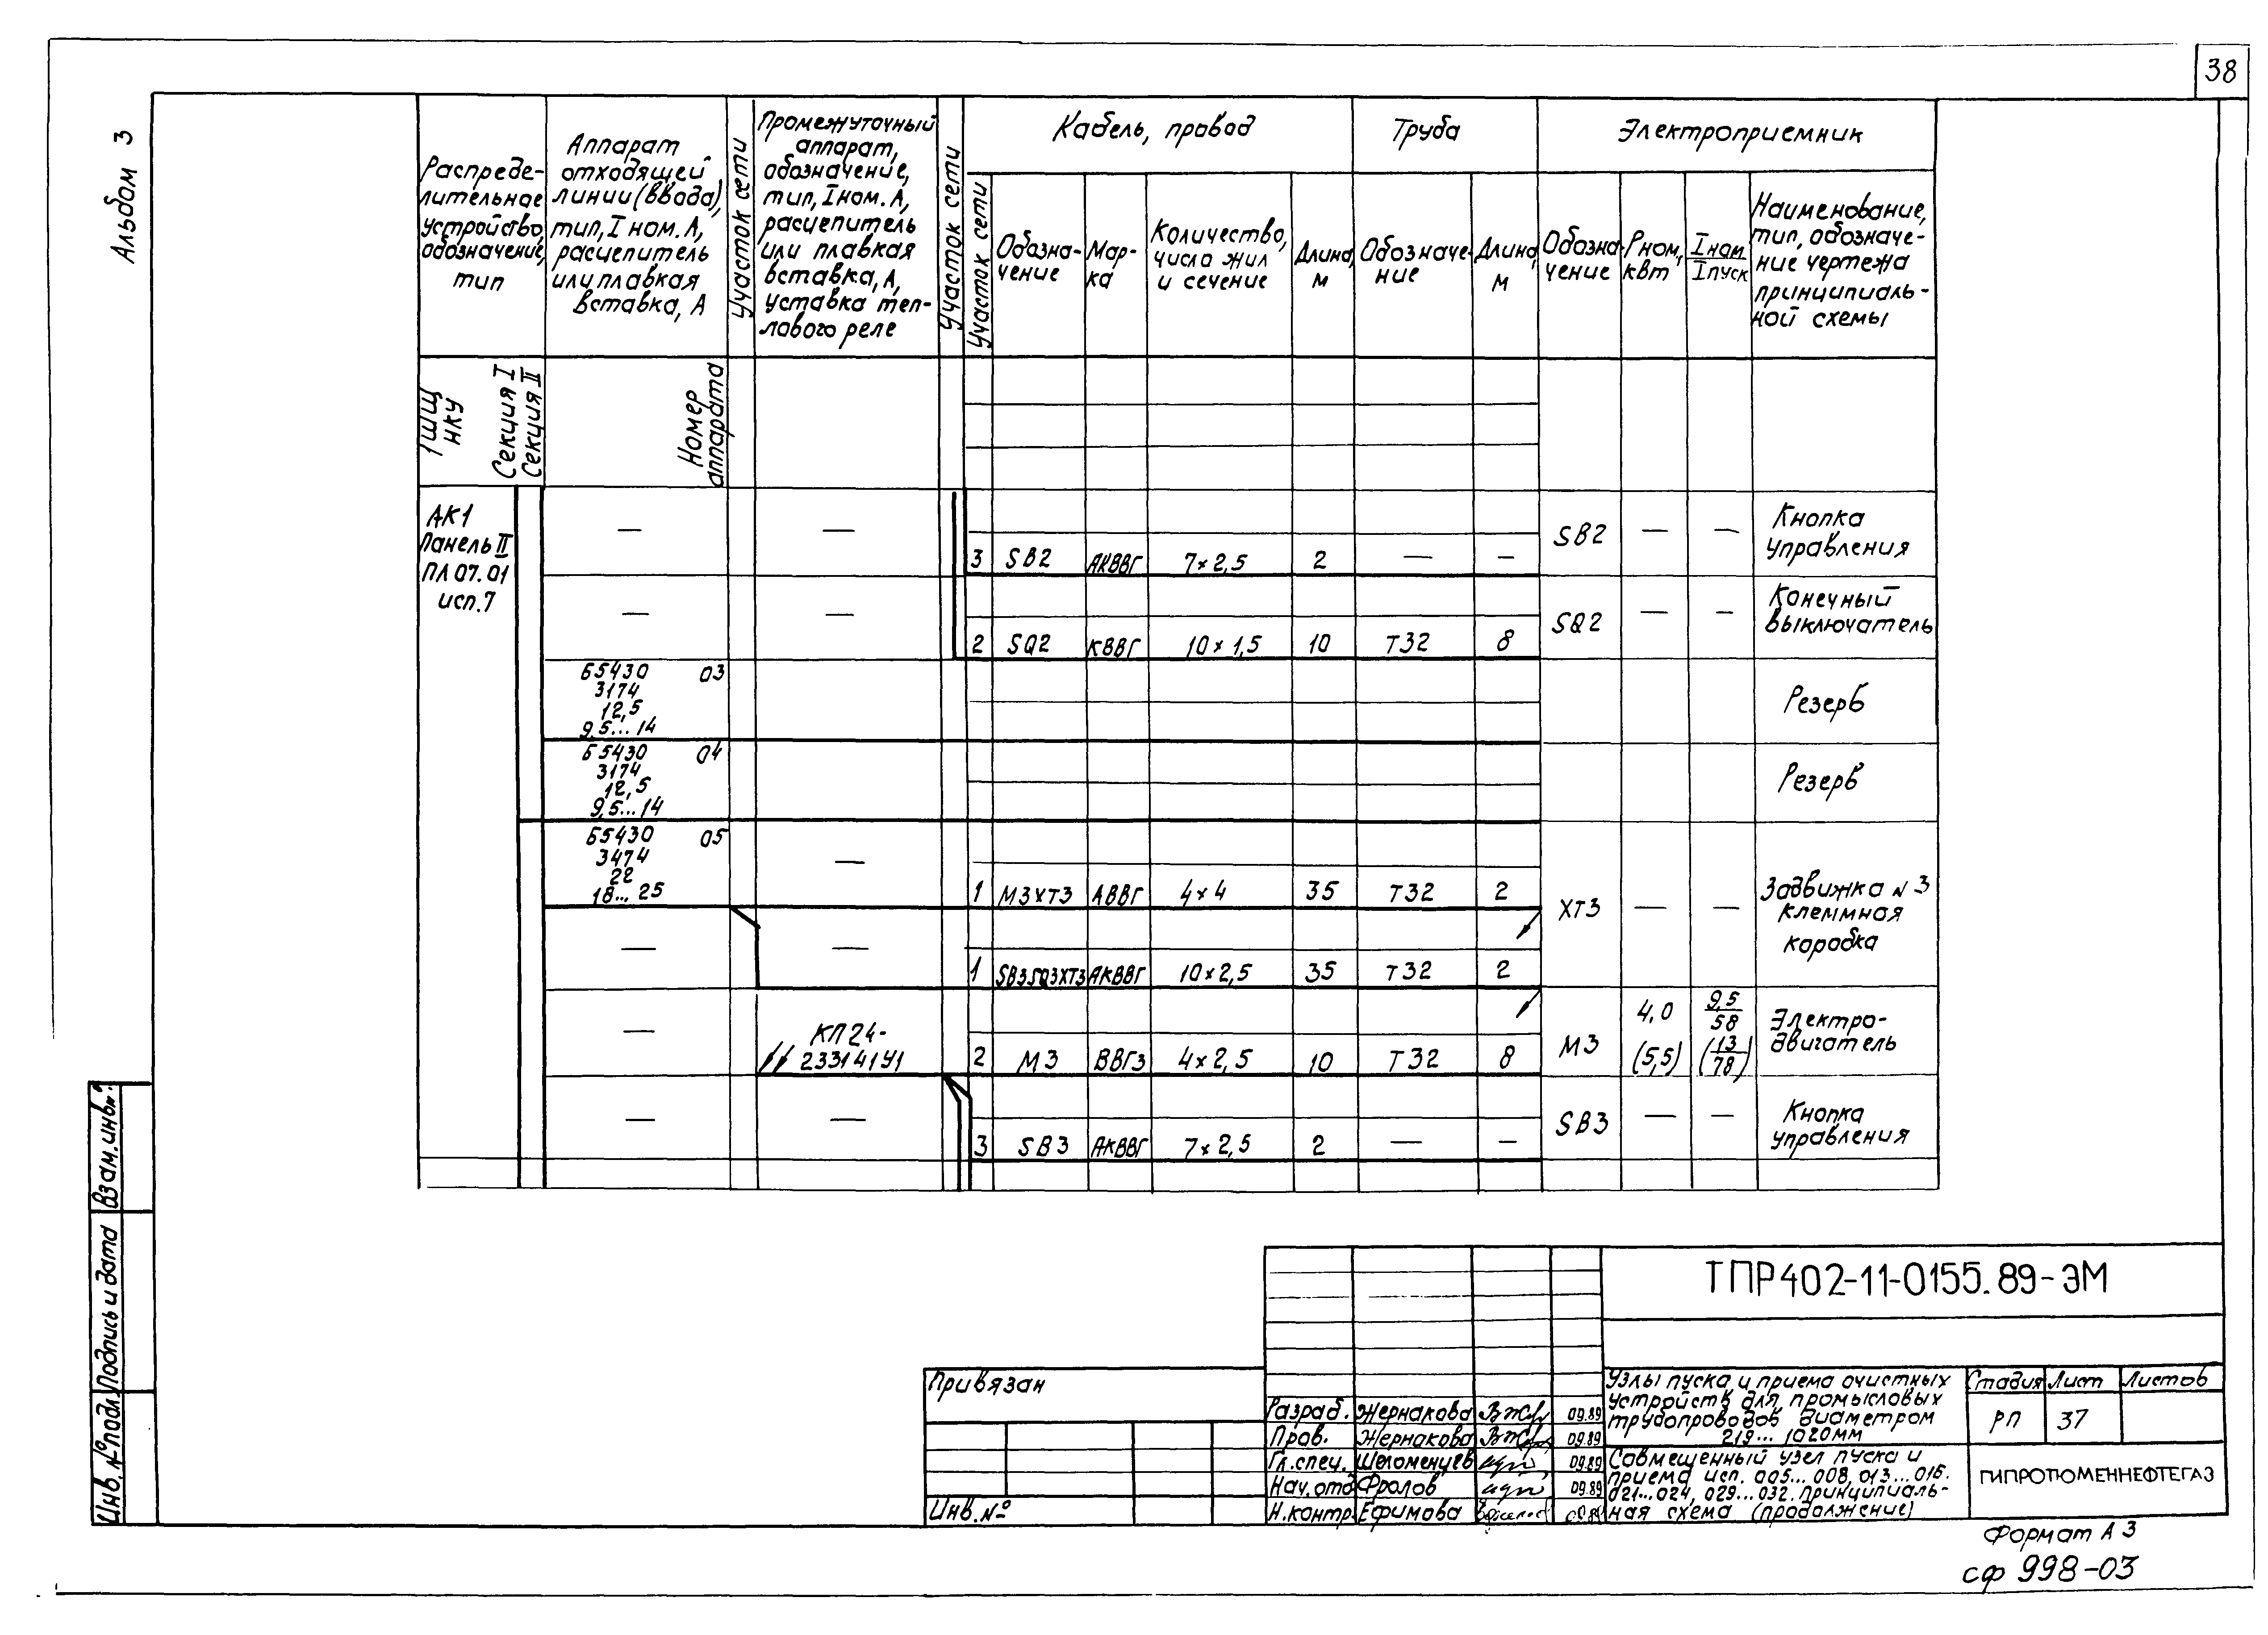 38
Альбом 3
Распреде-
лительное
устройство,
обозначение,
тип
Аппарат
отходящей
линии (ввода),
тип, I ном. А,
расцепитель
или плавкая
вставка, А
Участок сети
Промежуточный
аппарат,
обозначение,
тип, I ном. А,
расцепитель
или плавкая
вставка, А,
уставка теп-
лового реле
Участок сети
Участок сети
Кабель, провод
Обозна-
чение
Мар-
ка
Количество,
число жил
и сечение
Длина,
м
Труба
Обозначе-
ние
Длина,
м
Электроприемник
Обозна-
чение
Рном,
кВт
Iном
Iпуск
Наименование,
тип, обозначе-
ние чертежа
принципиаль-
ной схемы
1ШЩ
НКУ
Секция I
Секция II
Номер
аппарата
АК1
Панель II
ПЛ 07.01
исп. 7
— — 3 SB2 АКВВГ 7×2,5 2 — — SB2 — — Кнопка
управления
— — 2 SQ2 КВВГ 10×1,5 10 Т32 8 SQ2 — — Конечный
выключатель
Б5430 03
3174
12,5
9,5...14
Резерв
Б5430 04
3174
12,5
9,5...14
Резерв
Б5430 05
3474
22
18...25
— 1 М3ХТ3 АВВГ 4×4 35 Т32 2
ХТ3 — — Задвижка №3
клеммная
коробка
— — 1 SB3SQ3XT3 АКВВГ 10×2,5 35 Т32 2
— КП24-
233141У1
2 М3 ВВГз 4×2,5 10 Т32 8
М3 4,0 (5,5)
9,5
58
(13
78)
Электро-
двигатель
— — 3 SB3 АКВВГ 7×2,5 2 — — SB3 — — Кнопка
управления
Взам. инв №
Подпись и дата
Инв. № подл.
Привязан
Инв. №
ТПР402-11-0155.89-ЭМ
Разраб. Жернакова 09.89
Пров. Жернакова 09.89
Гл. спец. Шеломенцев 09.89
Нач. отд Фролов 09.89
Н. контр. Ефимова 09.89
Узлы пуска и приема очистных
устройств для промысловых
трубопроводов диаметром
219... 1020мм
Стадия Лист Листов
РП 37
Совмещенный узел пуска и
приема исп. 005... 008, 013... 016.
021... 024, 029... 032. Принципиаль-
ная схема (продолжение)
ГИПРОТЮМЕННЕФТЕГАЗ
Формат А3
сф 998-03